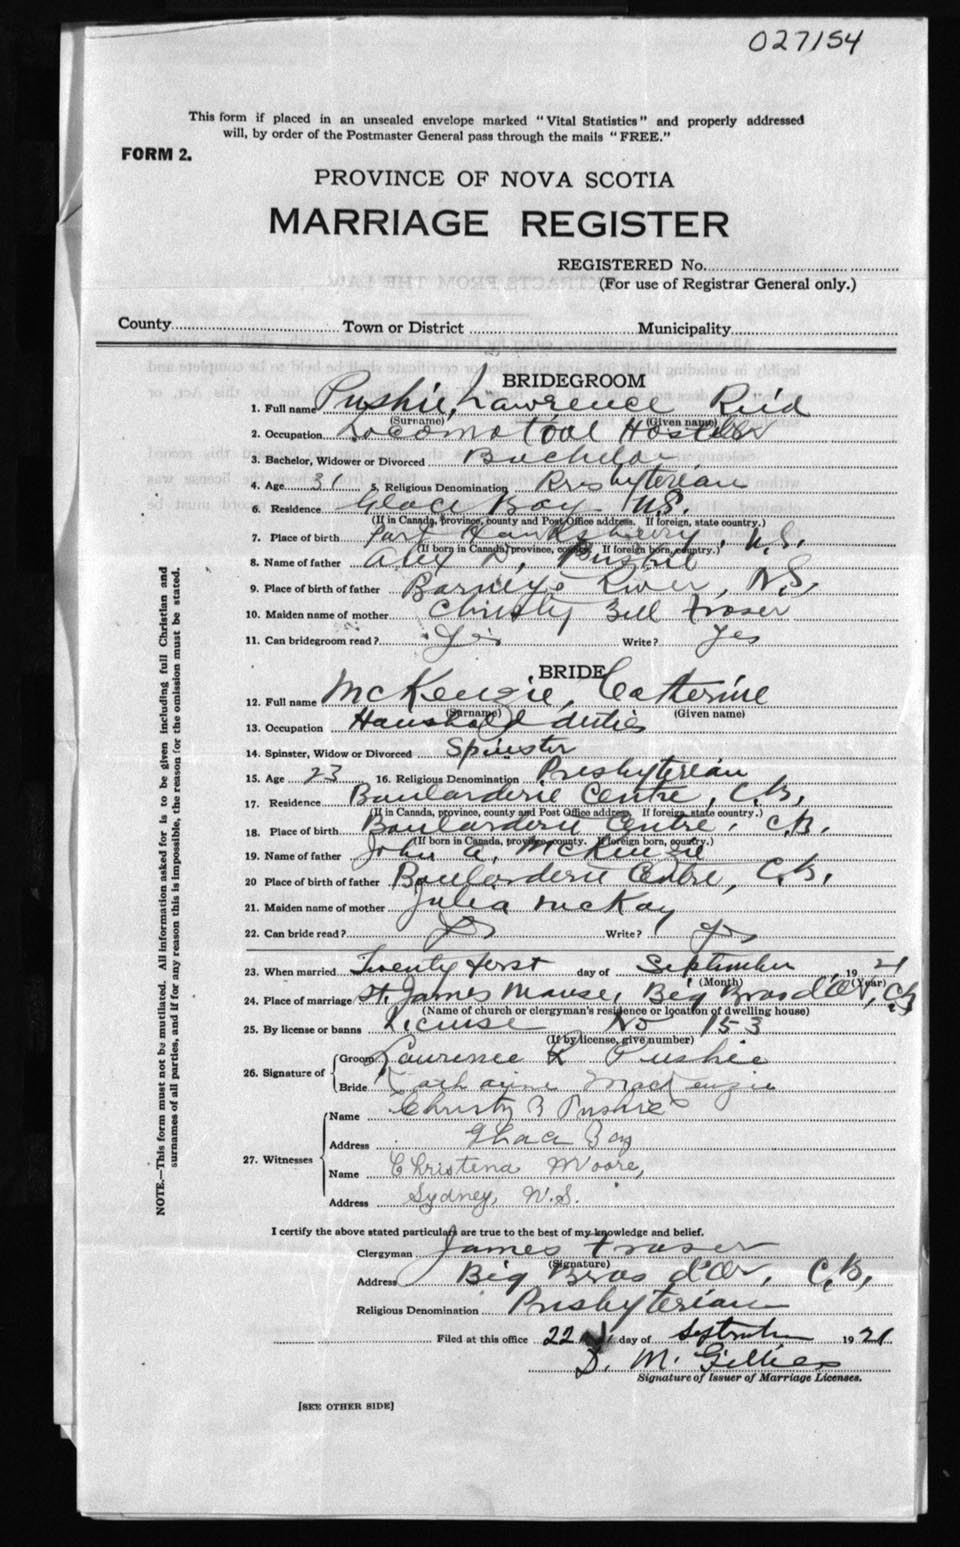 027154
This form if placed in an unsealed envelope marked "Vital Statistics" and properly addressed
will, by order of the Postmaster General pass through the mails "FREE."
FORM 2.
PROVINCE OF NOVA SCOTIA
MARRIAGE REGISTER
REGISTERED No.
(For use of Registrar General only.)
County Town or District Municipality
BRIDEGROOM
1. Full name Pushie, Lawrence Reid
(Surname) (Given name)
2. Occupation Hostler
3. Bachelor, Widower or Divorced Bachelor
4. Age 31 5. Religious Denomination Presbyterian
6. Residence Glace Bay N.S.
(If in Canada, province, county and Post Office address. If foreign, state country.)
7. Place of birth Port Hawksberry, N.S.
(If born in Canada, province, county. If foreign born, country.)
8. Name of father Alex D. Pushie
9. Place of birth of father Barneys River, N.S.
10. Maiden name of mother Christy Bell Fraser
11. Can bridegroom read? Yes Write? Yes
BRIDE
12. Full name McKenzie, Catherine
(Surname) (Given name)
13. Occupation Household duties
14. Spinster, Widow or Divorced Spinster
15. Age 23 16. Religious Denomination Presbyterian
17. Residence Boularderie Centre, C.B.
(If in Canada, province, county and Post Office address. If foreign, state country.)
18. Place of birth Boularderie Centre, C.B.
(If born in Canada, province, county. If foreign born, country.)
19. Name of father John A. McKenzie
20 Place of birth of father Boularderie Centre, C.B.
21. Maiden name of mother Julia McKay
22. Can bride read? Yes Write? Yes
23. When married Twenty first day of September, 1921
(Month) (Year)
24. Place of marriage St. James Manse, Big Bras d'Or, C.B.
(Name of church or clergyman's residence or location of dwelling house)
25. By license or banns License No 153
(If by license, give number)
26. Signature of Groom Lawrence R Pushie
Bride Katharine MacKenzie
27. Witnesses Name Christy B Pushie
Address Glace Bay
Name Christena Moore,
Address Sydney, N.S.
I certify the above stated particulars are true to the best of my knowledge and belief.
Clergyman James Fraser
(Signature)
Address Big Bras d'Or, C.B.
Religious Denomination Presbyterian
Filed at this office 22 day of September 1921
D. M. Gillies
Signature of Issuer of Marriage Licenses.
[SEE OTHER SIDE]
NOTE.—This form must not be mutilated. All information asked for is to be given including full Christian and
surnames of all parties, and if for any reason this is impossible, the reason for the omission must be stated.